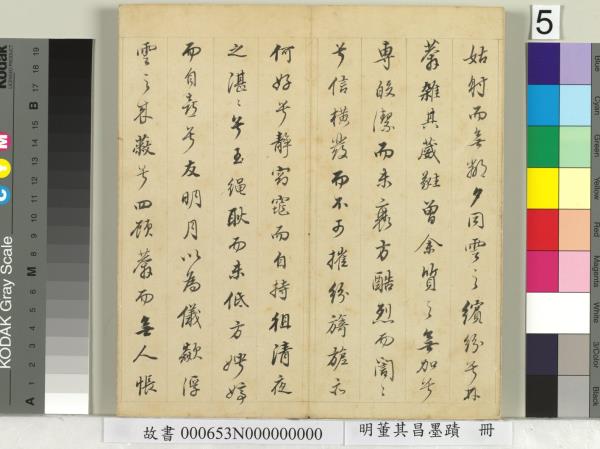 姑射而無鄰夕同雲之繽紛兮林
莽雜其葳蕤曾余質之無加兮
專皎潔而未衰方酷烈而誾〻
兮信橫發而不可摧紛旖旎亦
何好兮靜窈窕而自持徂清夜
之湛〻兮玉繩耿而未低方娉婷
而自喜兮友明月以為儀歘浮
雲之來蔽兮四顧莽而無人悵
故書 000653N000000000
明董其昌墨蹟 冊
5
KODAK Gray Scale
Kodak
C Y M
A 1 2 3 4 5 6 M 8 9 10 11 12 13 14 15 B 17 18 19
Blue
Cyan
Green
Yellow
Red
Magenta
White
3/Color
Black